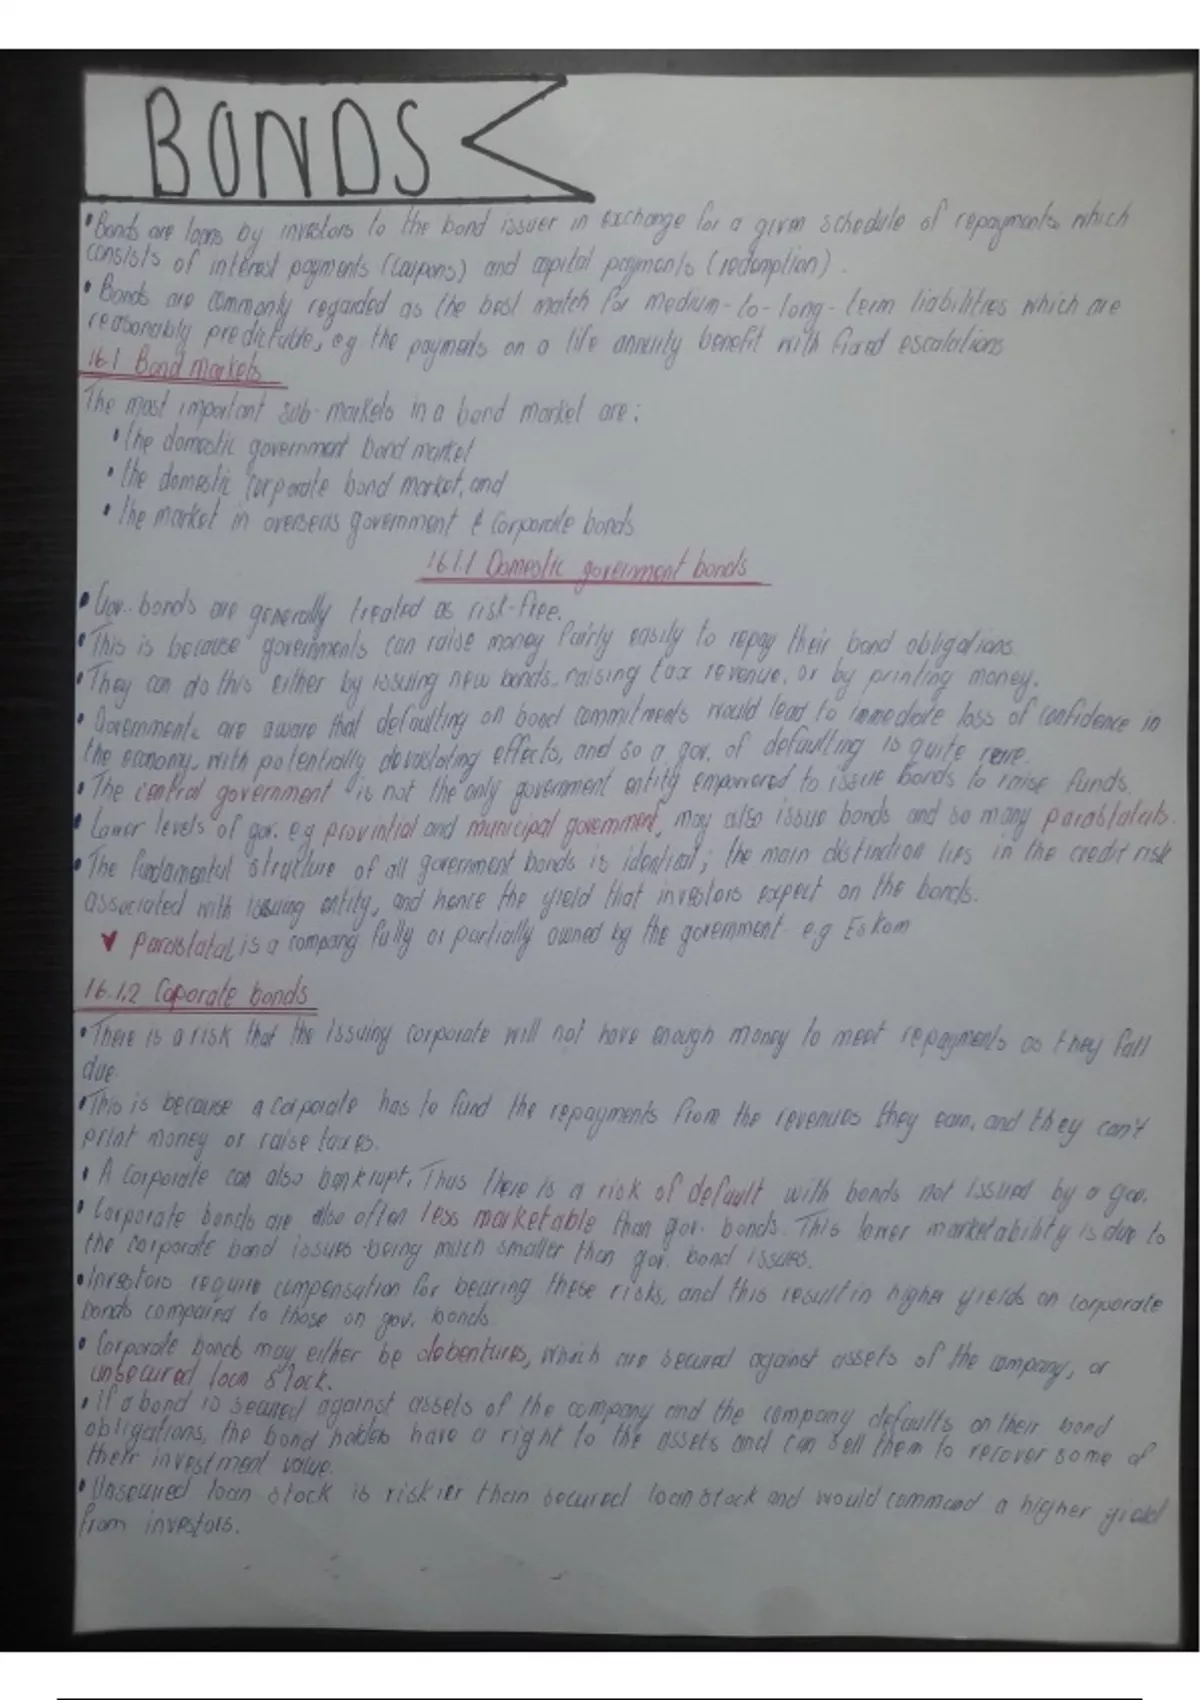 BONDS
• Bonds are loans by investors to the bond issuer in exchange for a given schedule of repayments which
consists of interest payments (coupons) and capital payments (redemption).
• Bonds are commonly regarded as the best match for medium-to-long-term liabilities which are
reasonably predictable, eg the payments on a life annuity benefit with fixed escalations
16.1 Bond markets
The most important sub-markets in a bond market are:
• the domestic government bond market
• the domestic corporate bond market, and
• the market in overseas government & corporate bonds
16.1.1 Domestic government bonds
• Gov. bonds are generally treated as risk-free.
• This is because governments can raise money fairly easily to repay their bond obligations.
• They can do this either by issuing new bonds, raising tax revenue, or by printing money.
• Governments are aware that defaulting on bond commitments would lead to immediate loss of confidence in
the economy, with potentially devastating effects, and so a gov. of defaulting is quite rare.
• The central government is not the only government entity empowered to issue bonds to raise funds.
• Lower levels of gov. e.g provintial and municipal government, may also issue bonds and so many parastatals.
• The fundamental structure of all government bonds is identical; the main distinction lies in the credit risk
associated with issuing entity, and hence the yield that investors expect on the bonds.
Parastatal is a company fully or partially owned by the government e.g Eskom
16.1.2 Coporate bonds
• There is a risk that the issuing corporate will not have enough money to meet repayments as they fall
due.
• This is because a corporate has to fund the repayments from the revenues they earn, and they can't
print money or raise taxes.
• A corporate can also bankrupt. Thus there is a risk of default with bonds not issued by a gov.
• Corporate bonds are also often less marketable than gov. bonds. This lower marketability is due to
the corporate bond issues being much smaller than gov. bond issues.
• Investors require compensation for bearing these risks, and this result in higher yields on corporate
bonds compared to those on gov. bonds.
• Corporate bonds may either be debentures, which are secured against assets of the company, or
unsecured loan stock.
• If a bond is secured against assets of the company and the company defaults on their bond
obligations, the bond holders have a right to the assets and can sell them to recover some of
their investment value.
• Unsecured loan stock is riskier than secured loan stock and would command a higher yield
from investors.